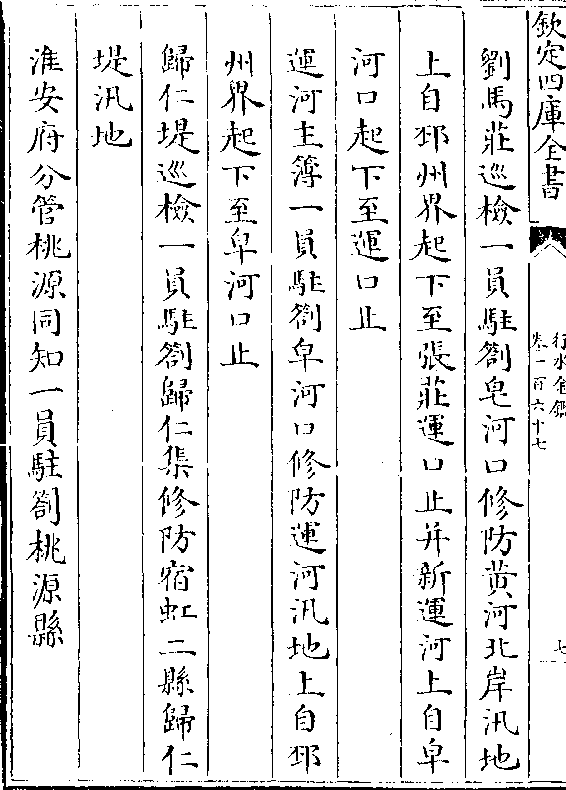 欽定四庫全書
行水金鑑
卷一百六十七
七
劉馬莊巡檢一員駐劄皂河口修防黄河北岸汛地
上自邳州界起下至張莊運口止并新運河上自皁
河口起下至運口止
運河主簿一員駐劄皁河口修防運河汛地上自邳
州界起下至皁河口止
歸仁堤巡檢一員駐劄歸仁集修防宿虹二縣歸仁
堤汛地
淮安府分管桃源同知一員駐劄桃源縣